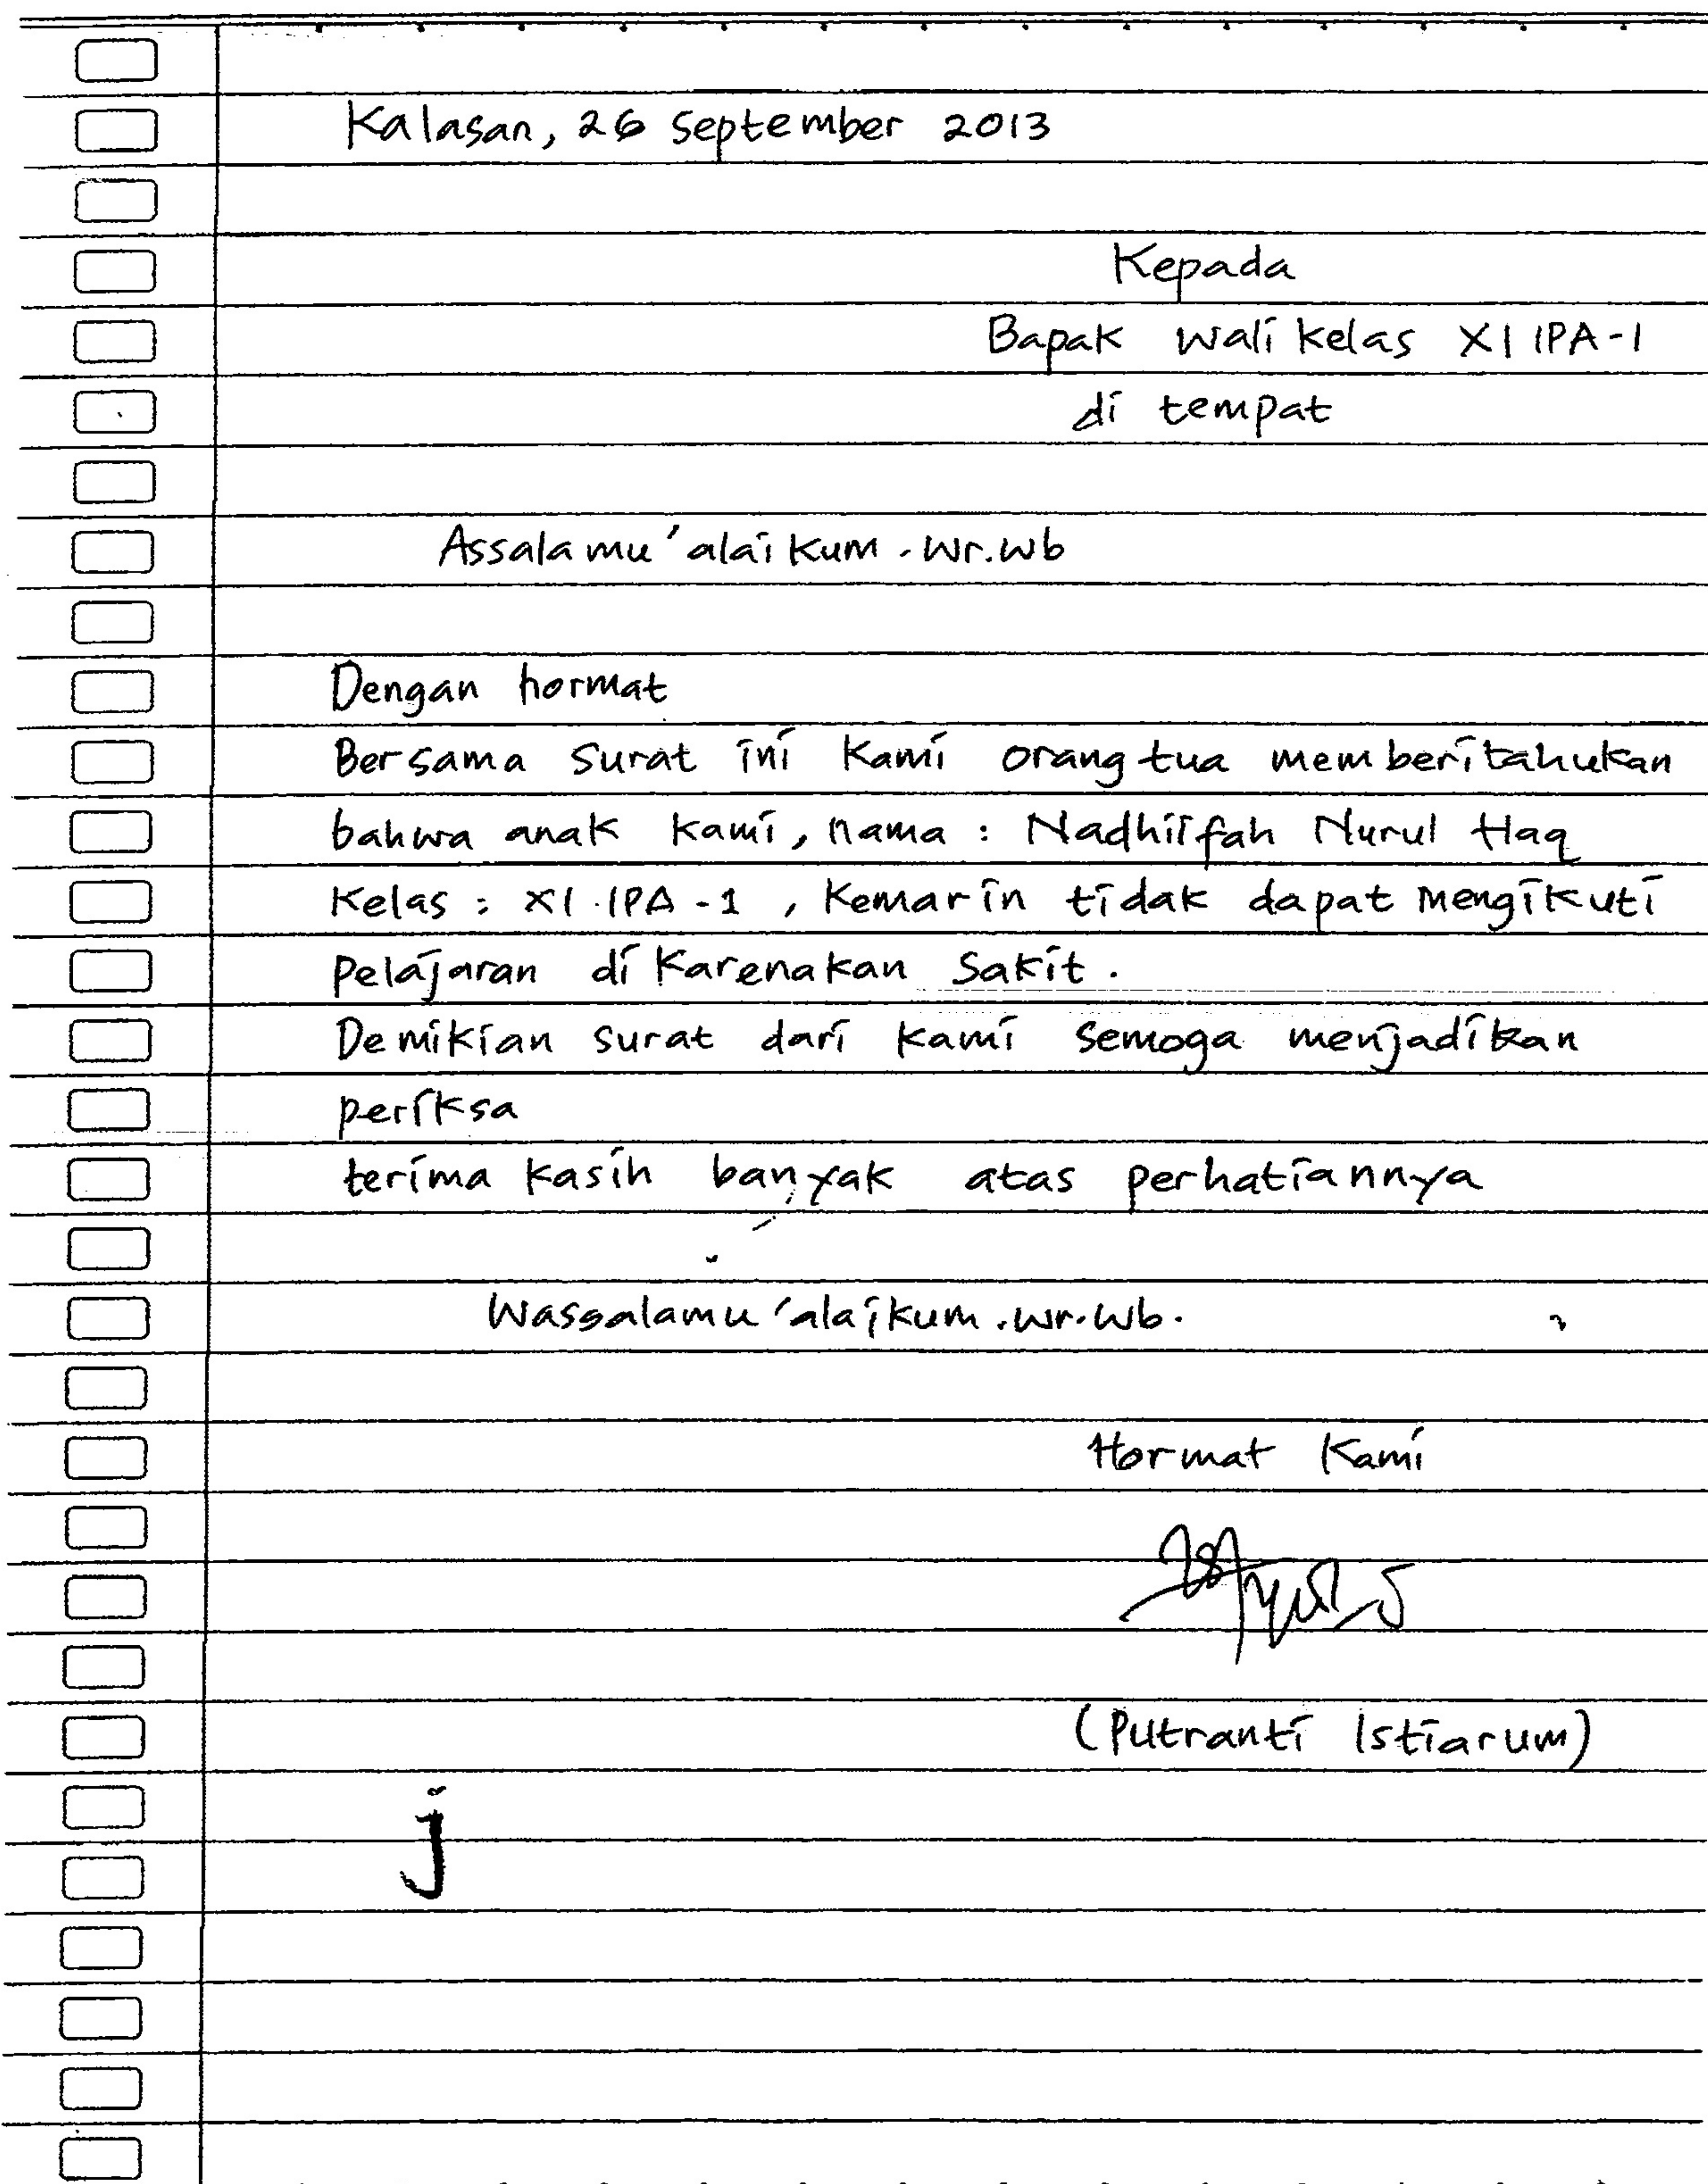 Kalasan, 26 September 2013
Kepada
Bapak Wali kelas XI IPA-1
di tempat
Assalamu'alaikum.Wr.Wb
Dengan hormat
Bersama Surat ini kami orang tua memberitahukan
bahwa anak kami, nama : Nadhiifah Nurul Haq
Kelas : XI.IPA-1, Kemarin tidak dapat mengikuti
pelajaran di karenakan Sakit.
Demikian surat dari kami semoga menjadikan
periksa
terima kasih banyak atas perhatiannya
Wassalamu'alaikum.Wr.Wb.
Hormat Kami
(Putranti Istiarum)
j